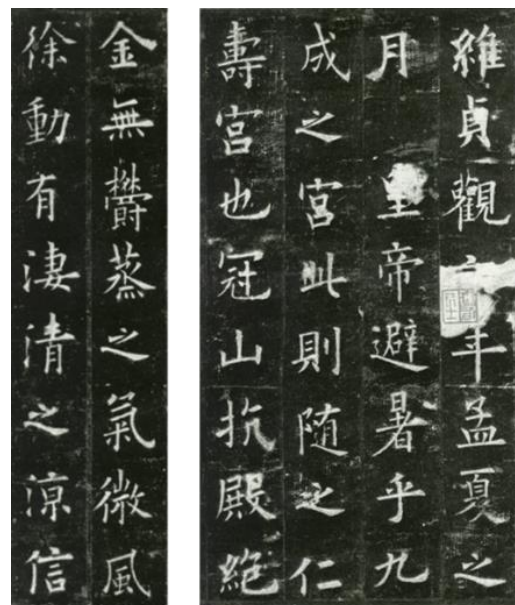 維貞觀六年孟夏之
月 皇帝避暑乎九
成之宮此則随之仁
壽宮也冠山抗殿絕
金無鬱蒸之氣微風
徐動有淒清之涼信